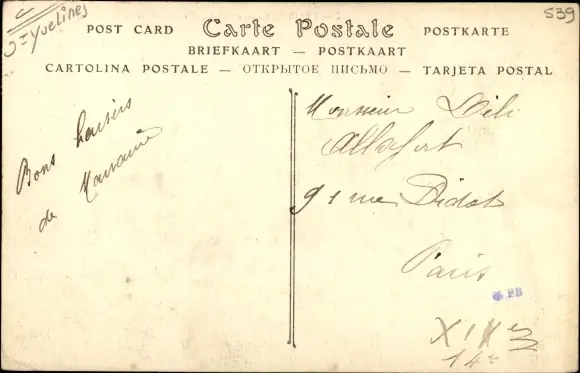 Yvelines
S39
POST CARD Carte Postale POSTKARTE
BRIEFKAART — POSTKAART
CARTOLINA POSTALE — ОТКРЫТОЕ ПИСЬМО — TARJETA POSTAL
Bons baisers
de
Monsieur
91 rue Didot
Paris
PB
14e